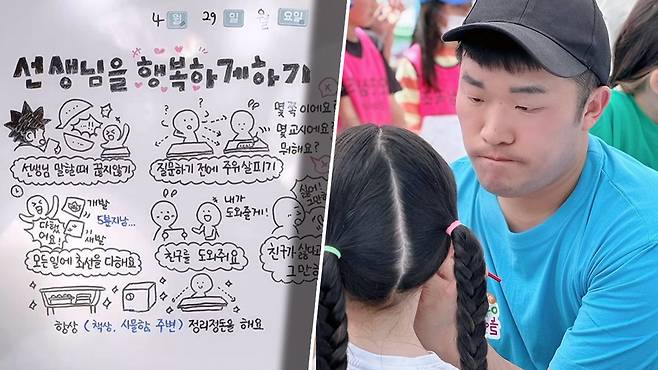 4 월 29 일 월 요일
선생님을 행복하게하기
몇 쪽이에요?
몇 교시에요?
뭐해요?
선생님 말할때 끊지않기
질문하기 전에 주위살피기
싫어!
그만해
개발
5분지남...
다했
어요!
새발
내가
도와줄게!
모든일에 최선을 다해요
친구를 도와줘요
친구가 싫다고
그만
항상 (책상, 사물함, 주변) 정리정돈을 해요